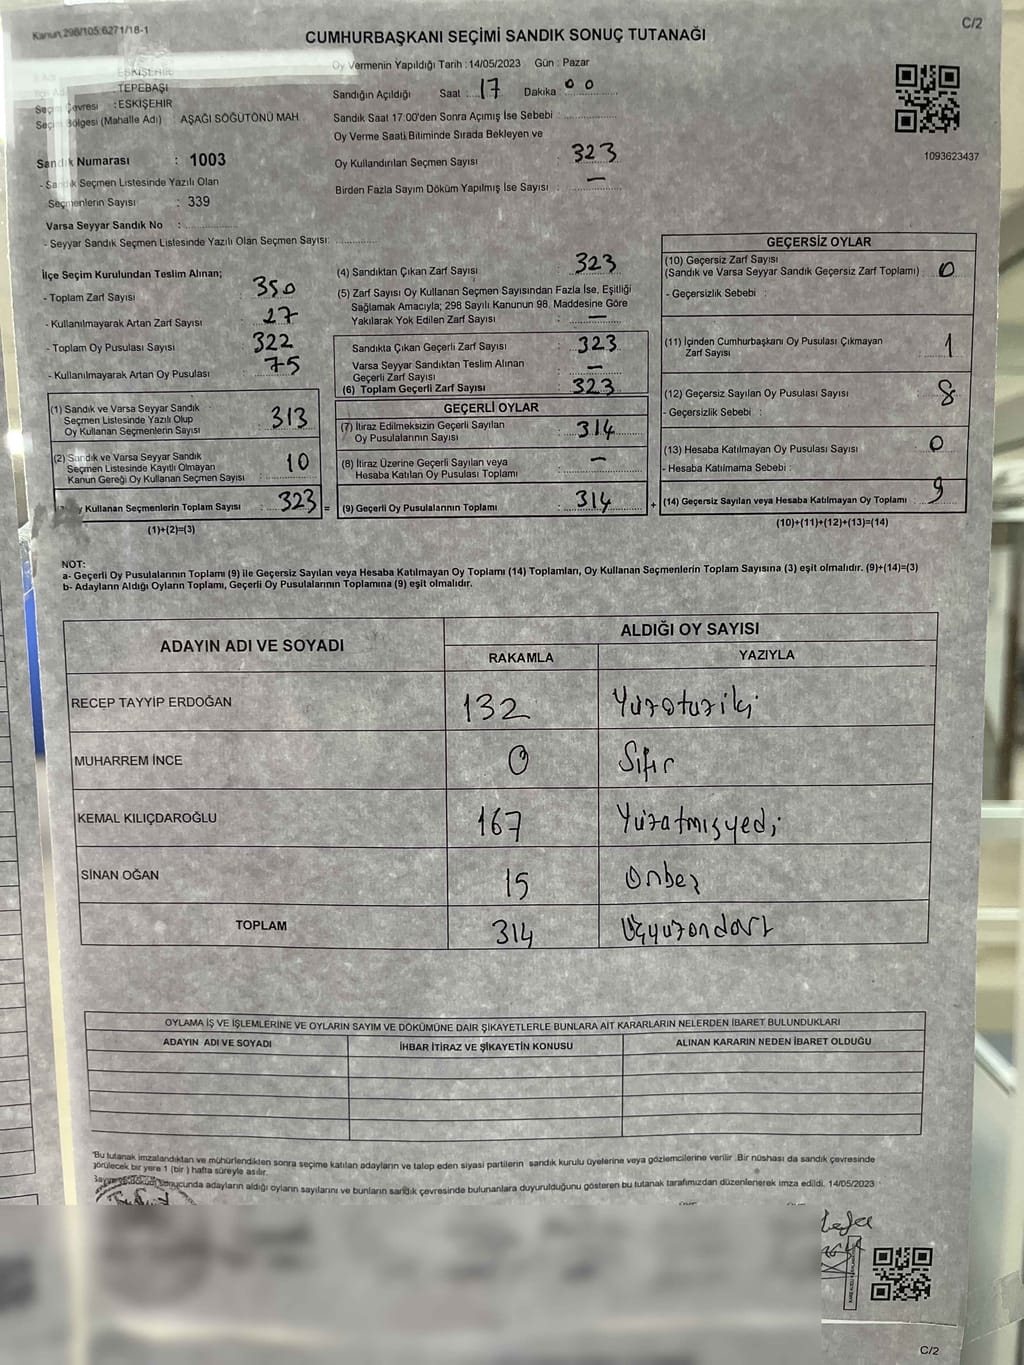 Kanun 298/105;6271/18-1
C/2
CUMHURBAŞKANI SEÇİMİ SANDIK SONUÇ TUTANAĞI
ESKİŞEHİR
: TEPEBAŞI
Seçim Çevresi : ESKİŞEHİR
Seçim Bölgesi (Mahalle Adı) : AŞAĞI SÖĞÜTÖNÜ MAH
Sandık Numarası : 1003
- Sandık Seçmen Listesinde Yazılı Olan
Seçmenlerin Sayısı : 339
Varsa Seyyar Sandık No :
- Seyyar Sandık Seçmen Listesinde Yazılı Olan Seçmen Sayısı:
Oy Vermenin Yapıldığı Tarih : 14/05/2023 Gün : Pazar
Sandığın Açıldığı Saat : 17 Dakika : 00
Sandık Saat 17:00'den Sonra Açımış İse Sebebi :
Oy Verme Saati Bitiminde Sırada Bekleyen ve
Oy Kullandırılan Seçmen Sayısı : 323
Birden Fazla Sayım Döküm Yapılmış İse Sayısı : —
1093623437
İlçe Seçim Kurulundan Teslim Alınan;
- Toplam Zarf Sayısı : 350
- Kullanılmayarak Artan Zarf Sayısı : 27
- Toplam Oy Pusulası Sayısı : 322
- Kullanılmayarak Artan Oy Pusulası : 75
(1) Sandık ve Varsa Seyyar Sandık
Seçmen Listesinde Yazılı Olup
Oy Kullanan Seçmenlerin Sayısı : 313
(2) Sandık ve Varsa Seyyar Sandık
Seçmen Listesinde Kayıtlı Olmayan
Kanun Gereği Oy Kullanan Seçmen Sayısı : 10
Kullanan Seçmenlerin Toplam Sayısı : 323 =
(1)+(2)=(3)
(4) Sandıktan Çıkan Zarf Sayısı : 323
(5) Zarf Sayısı Oy Kullanan Seçmen Sayısından Fazla İse, Eşitliği
Sağlamak Amacıyla; 298 Sayılı Kanunun 98. Maddesine Göre
Yakılarak Yok Edilen Zarf Sayısı : —
Sandıkta Çıkan Geçerli Zarf Sayısı : 323
Varsa Seyyar Sandıktan Teslim Alınan
Geçerli Zarf Sayısı : —
(6) Toplam Geçerli Zarf Sayısı : 323
GEÇERLİ OYLAR
(7) İtiraz Edilmeksizin Geçerli Sayılan
Oy Pusulalarının Sayısı : 314
(8) İtiraz Üzerine Geçerli Sayılan veya
Hesaba Katılan Oy Pusulası Toplamı : —
(9) Geçerli Oy Pusulalarının Toplamı : 314 +
GEÇERSİZ OYLAR
(10) Geçersiz Zarf Sayısı
(Sandık ve Varsa Seyyar Sandık Geçersiz Zarf Toplamı) : 0
- Geçersizlik Sebebi :
(11) İçinden Cumhurbaşkanı Oy Pusulası Çıkmayan
Zarf Sayısı : 1
(12) Geçersiz Sayılan Oy Pusulası Sayısı : 8
- Geçersizlik Sebebi :
(13) Hesaba Katılmayan Oy Pusulası Sayısı : 0
- Hesaba Katılmama Sebebi :
(14) Geçersiz Sayılan veya Hesaba Katılmayan Oy Toplamı : 9
(10)+(11)+(12)+(13)=(14)
NOT:
a- Geçerli Oy Pusulalarının Toplamı (9) ile Geçersiz Sayılan veya Hesaba Katılmayan Oy Toplamı (14) Toplamları, Oy Kullanan Seçmenlerin Toplam Sayısına (3) eşit olmalıdır. (9)+(14)=(3)
b- Adayların Aldığı Oyların Toplamı, Geçerli Oy Pusulalarının Toplamına (9) eşit olmalıdır.
ADAYIN ADI VE SOYADI ALDIĞI OY SAYISI
RAKAMLA YAZIYLA
RECEP TAYYİP ERDOĞAN 132 Yüzotuziki
MUHARREM İNCE 0 Sıfır
KEMAL KILIÇDAROĞLU 167 Yüzatmışyedi
SİNAN OĞAN 15 Onbeş
TOPLAM 314 Üçyüzondört
OYLAMA İŞ VE İŞLEMLERİNE VE OYLARIN SAYIM VE DÖKÜMÜNE DAİR ŞİKAYETLERLE BUNLARA AİT KARARLARIN NELERDEN İBARET BULUNDUKLARI
ADAYIN ADI VE SOYADI İHBAR İTİRAZ VE ŞİKAYETİN KONUSU ALINAN KARARIN NEDEN İBARET OLDUĞU
"Bu tutanak imzalandıktan ve mühürlendikten sonra seçime katılan adayların ve talep eden siyasi partilerin sandık kurulu üyelerine veya gözlemcilerine verilir .Bir nüshası da sandık çevresinde
görülecek bir yere 1 (bir ) hafta süreyle asılır.
sonucunda adayların aldığı oyların sayılarını ve bunların sandık çevresinde bulunanlara duyurulduğunu gösteren bu tutanak tarafımızdan düzenlenerek imza edildi. 14/05/2023
C/2